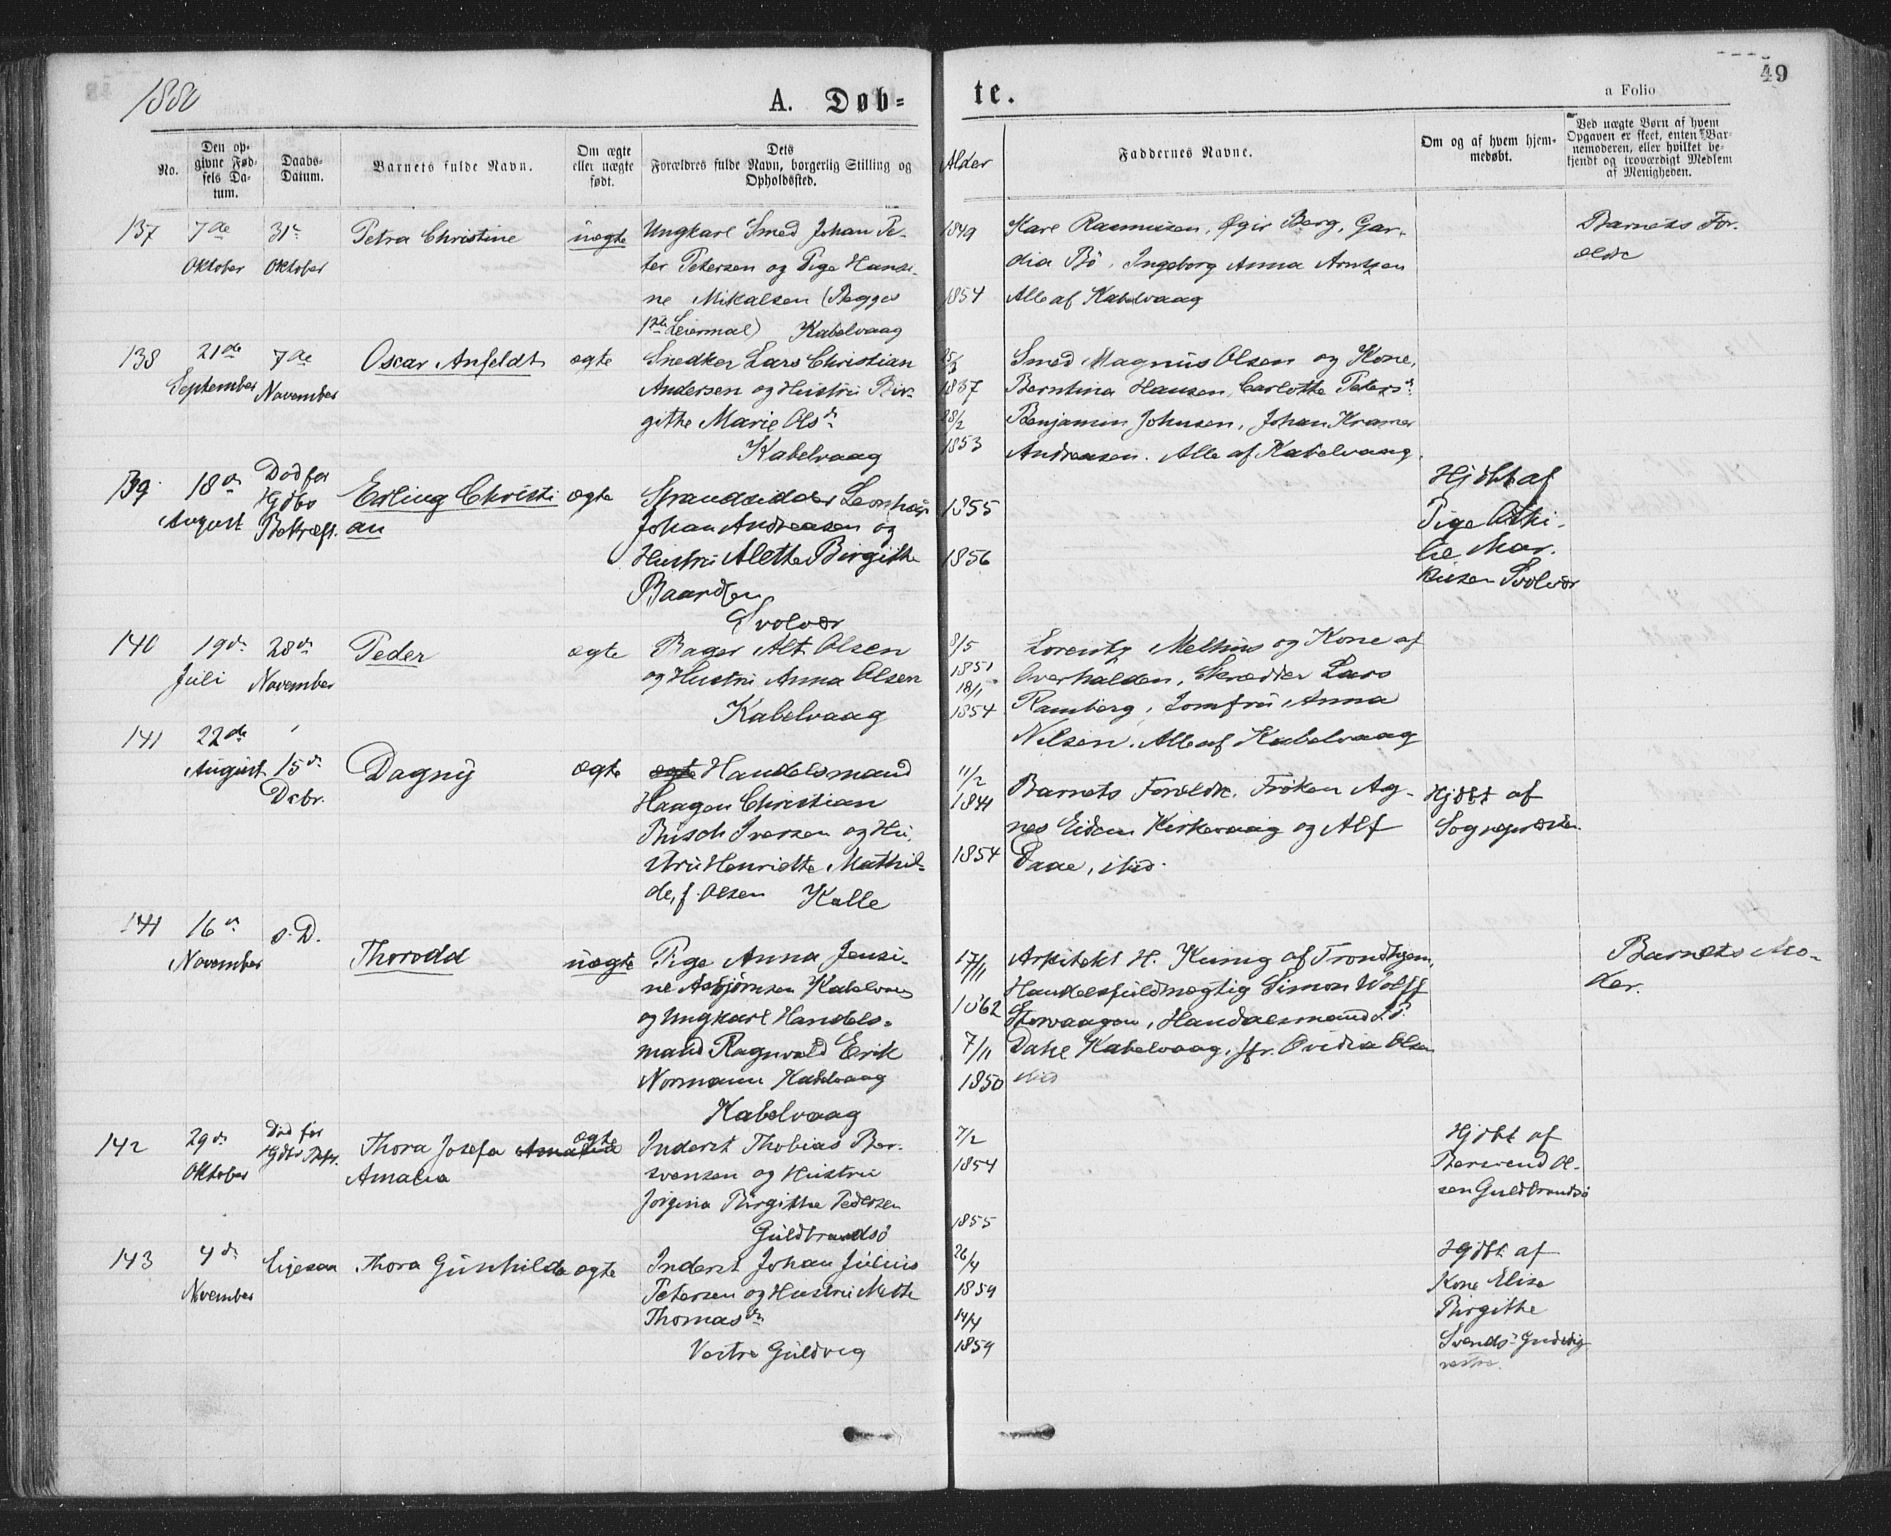 1880
A. Døb-
te.
a Folio
49
No.
Den op-
givne Fød-
sels Da-
tum.
Daabs-
Datum.
Barnets fulde Navn.
Om ægte
eller uægte
født.
Dets
Forældres fulde Navn, borgerlig Stilling og
Opholdssted.
Alder
Faddernes Navne.
Om og af hvem hjem-
medøbt.
Ved uægte Børn af hvem
Opgaven er skeet, enten Bar-
nemoderen, eller hvilket be-
kjendt og troværdigt Medlem
af Menigheden.
137
7de
Oktober
31te
Oktober
Petra Christine
uægte
Ungkarl Smed Johan Pe-
ter Petersen og Pige Hansi-
ne Mikalsen (Begges
1ste Leiermal) Kabelvaag
1849
1854
Kare Rasmusen, Øgir Berg, Gar-
dia Bø, Ingeborg Anna Arntzen
Alle af Kabelvaag
Barnets For-
ældre
138
21de
September
7de
November
Oscar Anfeldt
ægte
Snedker Lars Christian
Andersen og Hustru Bir-
githe Marie Olsdr
Kabelvaag
1837
28/2
1853
Smed Magnus Olsen og Kone,
Berntina Hansen, Carlotte Petersdr
Benjamin Johnsen, Johan Kramer
Andreasen. Alle af Kabelvaag.
139
18de
August
Død før
Hjdbs
Bekræft.
Erling Christi
an
ægte
Strandsidder Leonhard
Johan Andreasen og
Hustru Alethe Birgithe
Baardsen
Svolvær
1855
1856
Hjdbt af
Pige Othi-
lie Mar-
kusen Svolvær
140
19de
Juli
28de
November
Peder
ægte
Bager Alt Olsen
og Hustru Anna Olsen
Kabelvaag
8/5
1851
18/1
1854
Lorentz Melhus og Kone af
Overhalden, Skrædder Lars
Ramberg, Jomfru Anna
Nilsen. Alle af Kabelvaag
141
22de
August
15de
Dcbr.
Dagny
ægte
ægte Handelsmand
Haagen Christian
Busch Iversen og Hu-
stru Henriette Mathil-
de, f. Olsen Kalle
11/2
1841
1854
Barnets Forældre. Frøken Ag-
nes Eidem Kirkevaag og Alf
Daae, ibid.
Hjdbt af
Sognepresten
141
16de
November
s. D.
Thorodd
uægte
Pige Anna Jensi-
ne Asbjørnsen Kabelvaag
og Ungkarl Handels-
mand Ragnvald Erik
Normann Kabelvaag
Kabelvaag
17/11
1862
7/11
1850
Arkitekt H. Kunig af Trondhjem,
Handelsfuldmægtig Simon Wolff
Storvaagen, Handelsmand
Dahl Kabelvaag, jfr. Ovidia Olsen
ibid
Barnets Mo-
der.
142
29de
Oktober
Død før
Hjdbs Bekr.
Thora Josefa Amalie
Amalia
ægte
Inderst Thobias Ber-
svensen og Hustru
Jørgina Birgitha Pedersen
Guldbrandsø
7/2
1854
1855
Hjdbt af
Bersvend Ol-
sen Guldbrandsø
143
4de
November
Ligesaa
Thora Gunhilda
ægte
Inderst Johan Julius
Petersen og Hustru Mette
Thomasdr
Vestre Guldvig
26/4
1859
14/4
1859
Hjdbt af
Kone Elise
Birgithe
Svendsdr Guldvig
vestre.